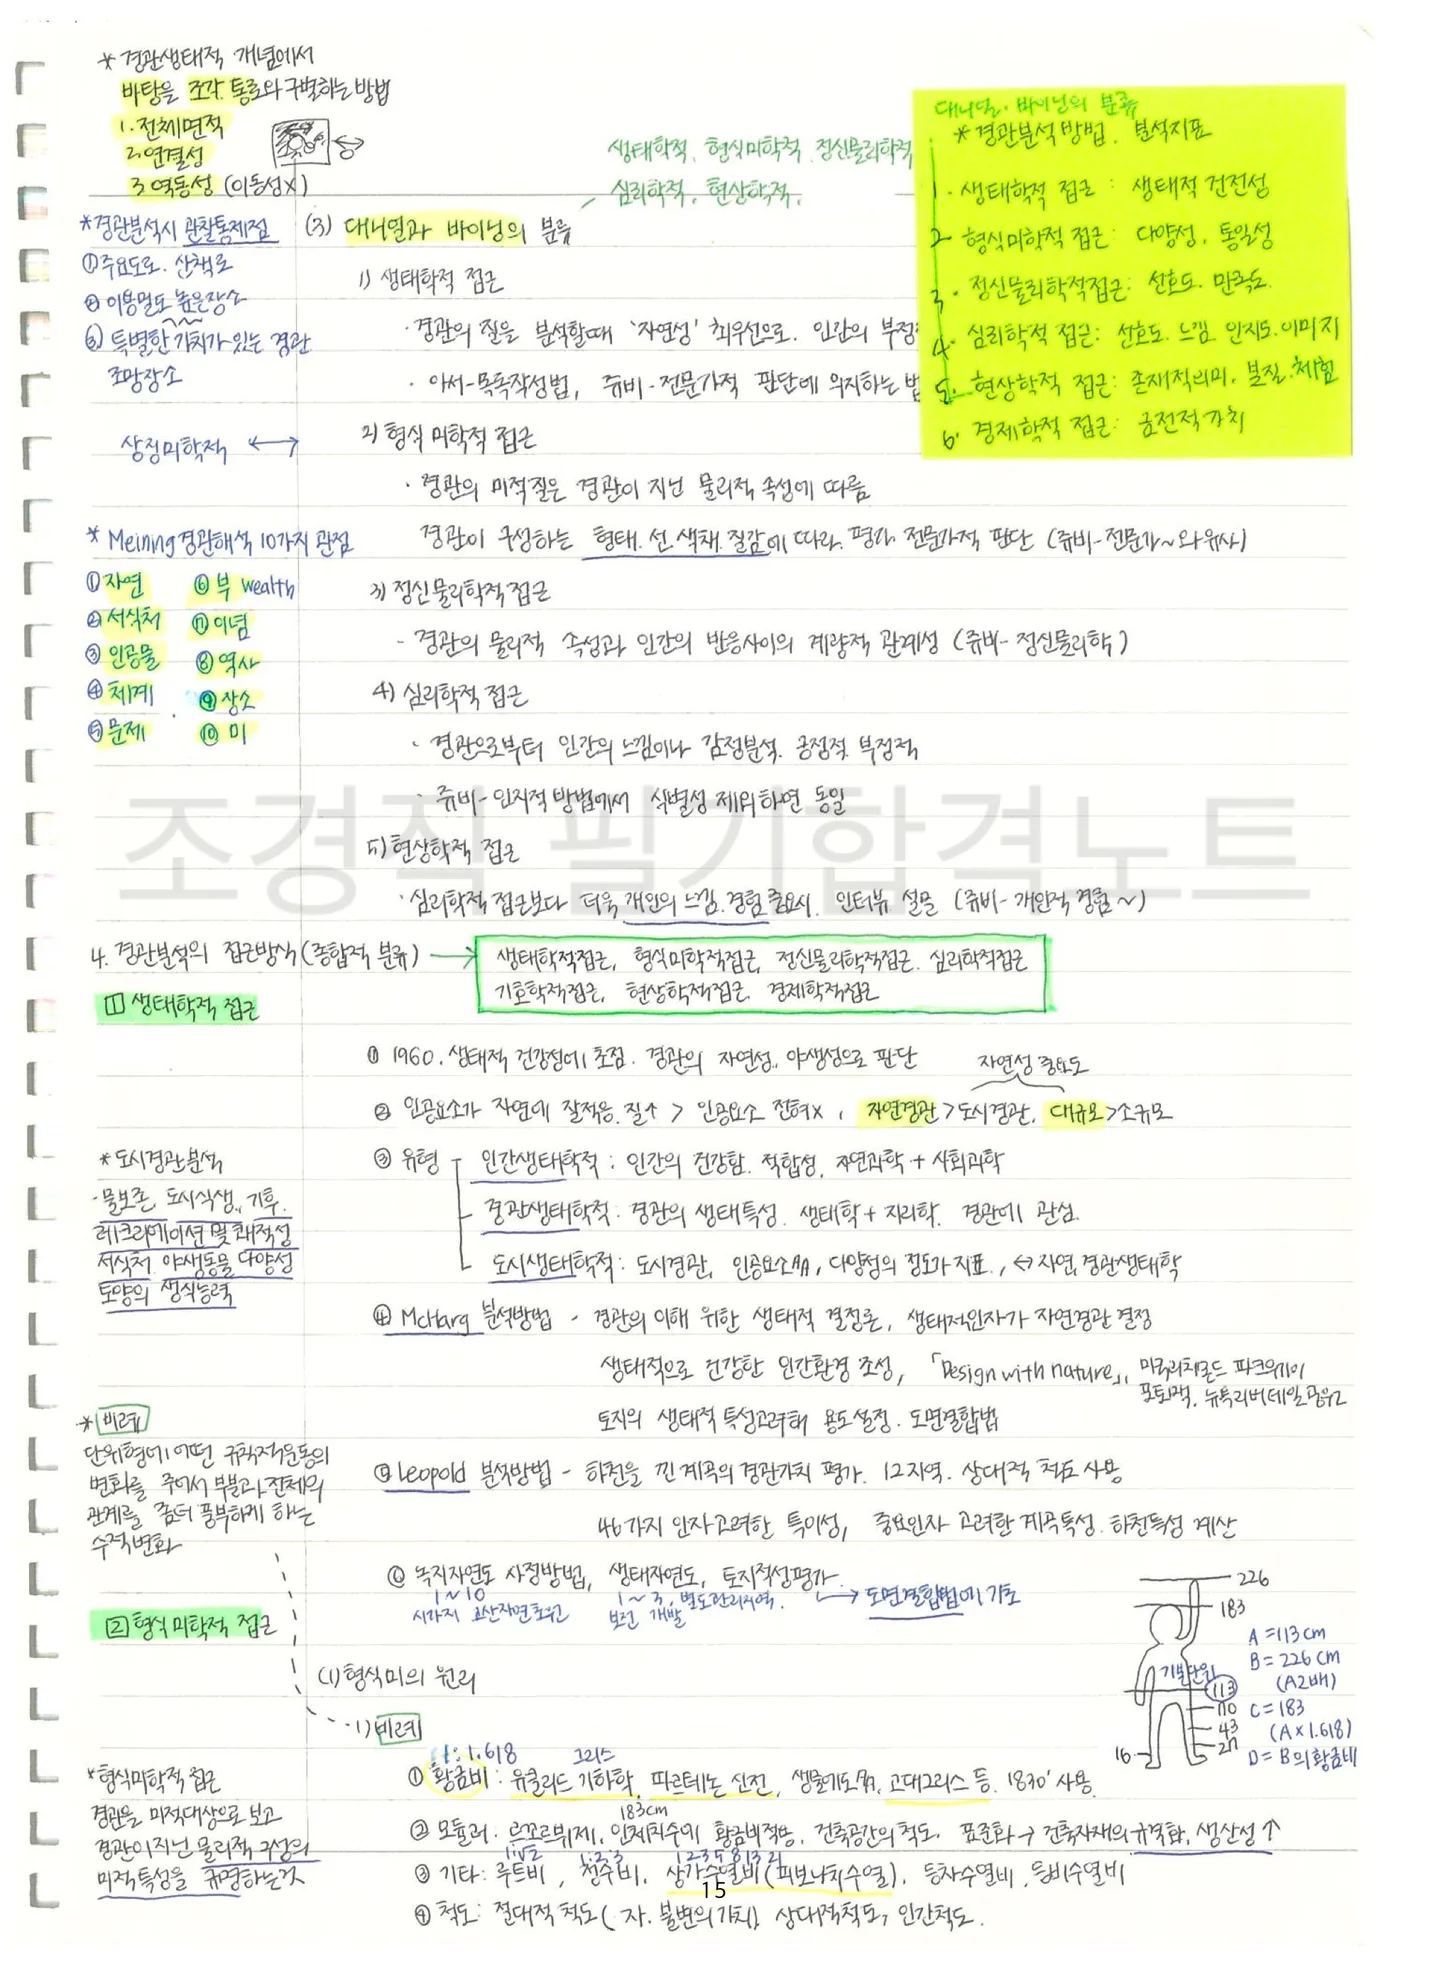 * 경관생태적 개념에서
바탕을 조각. 통로와 구별하는 방법
1. 전체면적
2. 연결성
3. 역동성 (이동성x)
생태학적, 형식미학적, 정신물리학적
심리학적, 현상학적,
대니얼. 바이닝의 분류
* 경관분석 방법, 분석지표
1. 생태학적 접근 : 생태적 건전성
2. 형식미학적 접근 : 다양성, 통일성
3. 정신물리학적접근 : 선호도. 만족도
4. 심리학적 접근 : 선호도. 느낌. 인지도. 이미지
5. 현상학적 접근 : 존재적의미, 본질.체험
6. 경제학적 접근 : 금전적가치
*경관분석시 관찰통제점
①주요도로. 산책로
② 이용밀도 높은장소
③ 특별한 가치가 있는 경관
조망장소
(3) 대니얼과 바이닝의 분류
1) 생태학적 접근
· 경관의 질을 분석할때 '자연성' 최우선으로. 인간의 부정
· 아서-목록작성법, 쥬비-전문가적 판단에 의지하는 법
상징미학적 ↔
2) 형식 미학적 접근
· 경관의 미적질은 경관이 지닌 물리적 속성에 따름
경관이 구성하는 형태.선.색채.질감에 따라. 평가. 전문가적 판단 (쥬비-전문가~와유사)
* Meining 경관해석 10가지 관점
① 자연 ⑥ 부 wealth
② 서식처 ⑦ 이념
③ 인공물 ⑧ 역사
④ 체계 ⑨ 장소
⑤ 문제 ⑩ 미
3) 정신물리학적접근
- 경관의 물리적 속성과 인간의 반응사이의 계량적 관계성 (쥬비-정신물리학)
4) 심리학적 접근
· 경관으로부터 인간의 느낌이나 감정분석. 긍정적. 부정적
· 쥬비-인지적 방법에서 식별성 제외하면 동일
조경직 필기합격노트
5) 현상학적 접근
· 심리학적 접근보다 더욱 개인의 느낌.경험 중요시. 인터뷰 설문 (쥬비-개인적 경험~)
4. 경관분석의 접근방식 (종합적 분류) →
생태학적접근, 형식미학적접근, 정신물리학적접근. 심리학적접근
기호학적접근, 현상학적접근. 경제학적접근
1 생태학적 접근
① 1960. 생태적 건강성에 초점. 경관의 자연성, 야생성으로 판단
자연성 중요도
② 인공요소가 자연에 잘적응. 질↑ > 인공요소 전혀x, 자연경관>도시경관, 대규모>소규모
③ 유형 인간생태학적 : 인간의 건강함. 적합성, 자연과학+사회과학
경관생태학적 : 경관의 생태특성. 생태학+지리학. 경관에 관심.
도시생태학적 : 도시경관, 인공요소, 다양성의 정도가 지표., ↔자연, 경관생태학
* 도시경관분석
· 물보존, 도시식생, 기후,
레크리에이션 및 쾌적성
서식처. 야생동물 다양성
토양의 생식능력
④ McHarg 분석방법 - 경관의 이해 위한 생태적 결정론, 생태적인자가 자연경관 결정
생태적으로 건강한 인간환경 조성, 「Design with nature」, 미국리치몬드 파크웨이
포토맥, 뉴욕리버데일공유고
토지의 생태적 특성고려해 용도설정. 도면결합법
* 비례
단위형에 어떤 규칙적운동의
변화를 주어서 부분과 전체의
관계를 좀더 풍부하게 하는
수적변화
⑤ Leopold 분석방법 - 하천을 낀 계곡의 경관가치 평가. 12지역. 상대적 척도 사용
46가지 인자고려한 특이성, 중요인자 고려한 계곡특성. 하천특성 계산
⑥ 녹지자연도 사정방법, 생태자연도, 토지적성평가.
1~10
시가지 고산자연초원
1~3, 별도관리지역.
보전 개발
→ 도면결합법에 기초
2 형식미학적 접근
(1) 형식미의 원리
1) 비례
226
183
기본단위
113
110
43
27
16
A=113cm
B=226cm
(A2배)
C=183
(A×1.618)
D=B의황금비
1:1.618 그리스
① 황금비 : 유클리드 기하학, 파르테논 신전, 생물기도, 고대그리스 등. 1830' 사용.
183cm
② 모듈러 : 르꼬르뷔제, 인체치수에 황금비적용, 건축공간의 척도. 표준화→건축자재의 규격화, 생산성↑
1:√2 1:2:3 1 2 3 5 8 13 21
③ 기타 : 루트비, 정수비, 상가수열비(피보나치수열), 등차수열비, 등비수열비
④ 척도 : 절대적 척도( 자. 불변의가치) 상대적척도, 인간척도.
* 형식미학적 접근
경관을 미적대상으로 보고
경관이지닌 물리적 구성의
미적특성을 규명하는것
15